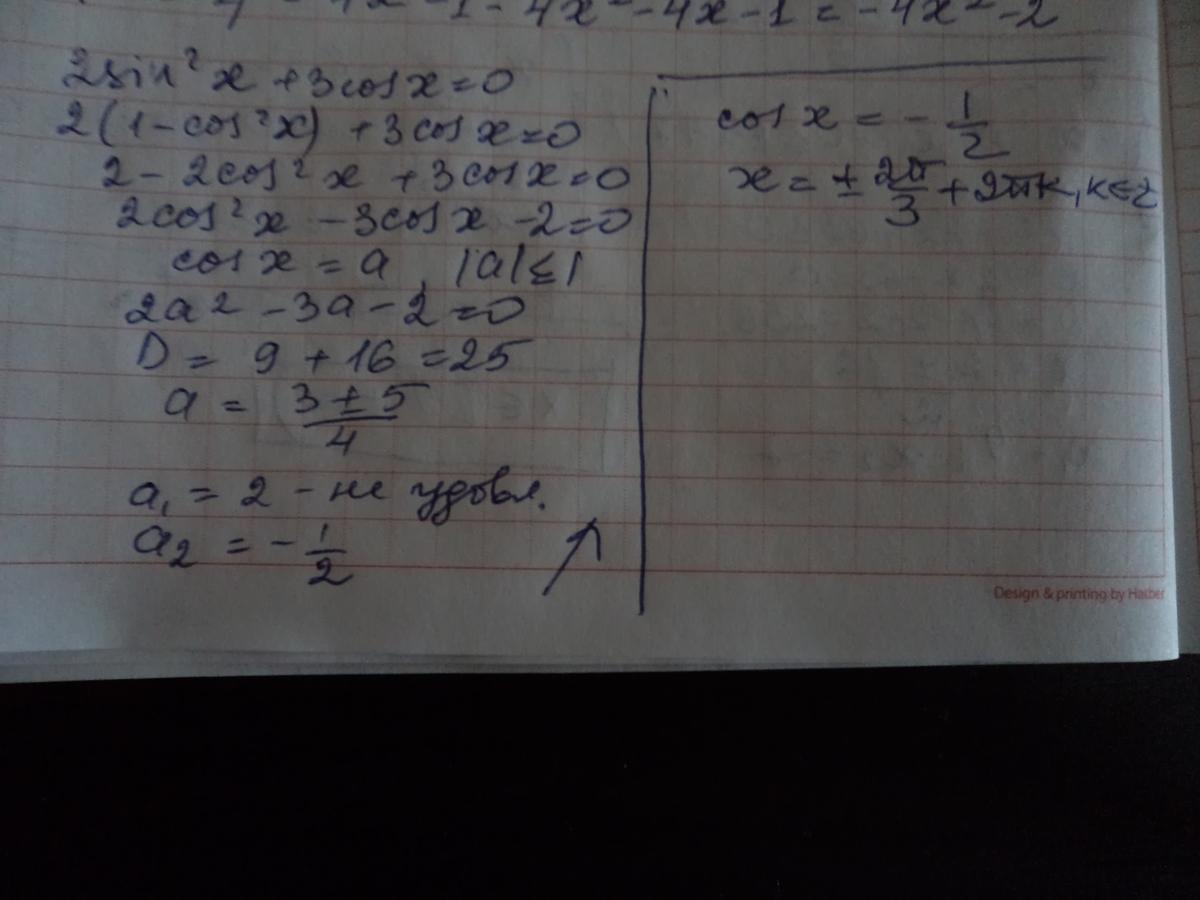 - 4x - 1 - 4x² - 4x - 1 = -4x² - 2
2sin²x + 3cosx = 0
2(1 - cos²x) + 3cosx = 0
2 - 2cos²x + 3cosx = 0
2cos²x - 3cosx - 2 = 0
cosx = a, |a| ≤ 1
2a² - 3a - 2 = 0
D = 9 + 16 = 25
a = (3 ± 5)/4
a₁ = 2 - не удовл.
a₂ = -1/2
cosx = -1/2
x = ± 2π/3 + 2πk, k∈z
Design & printing by Hatber